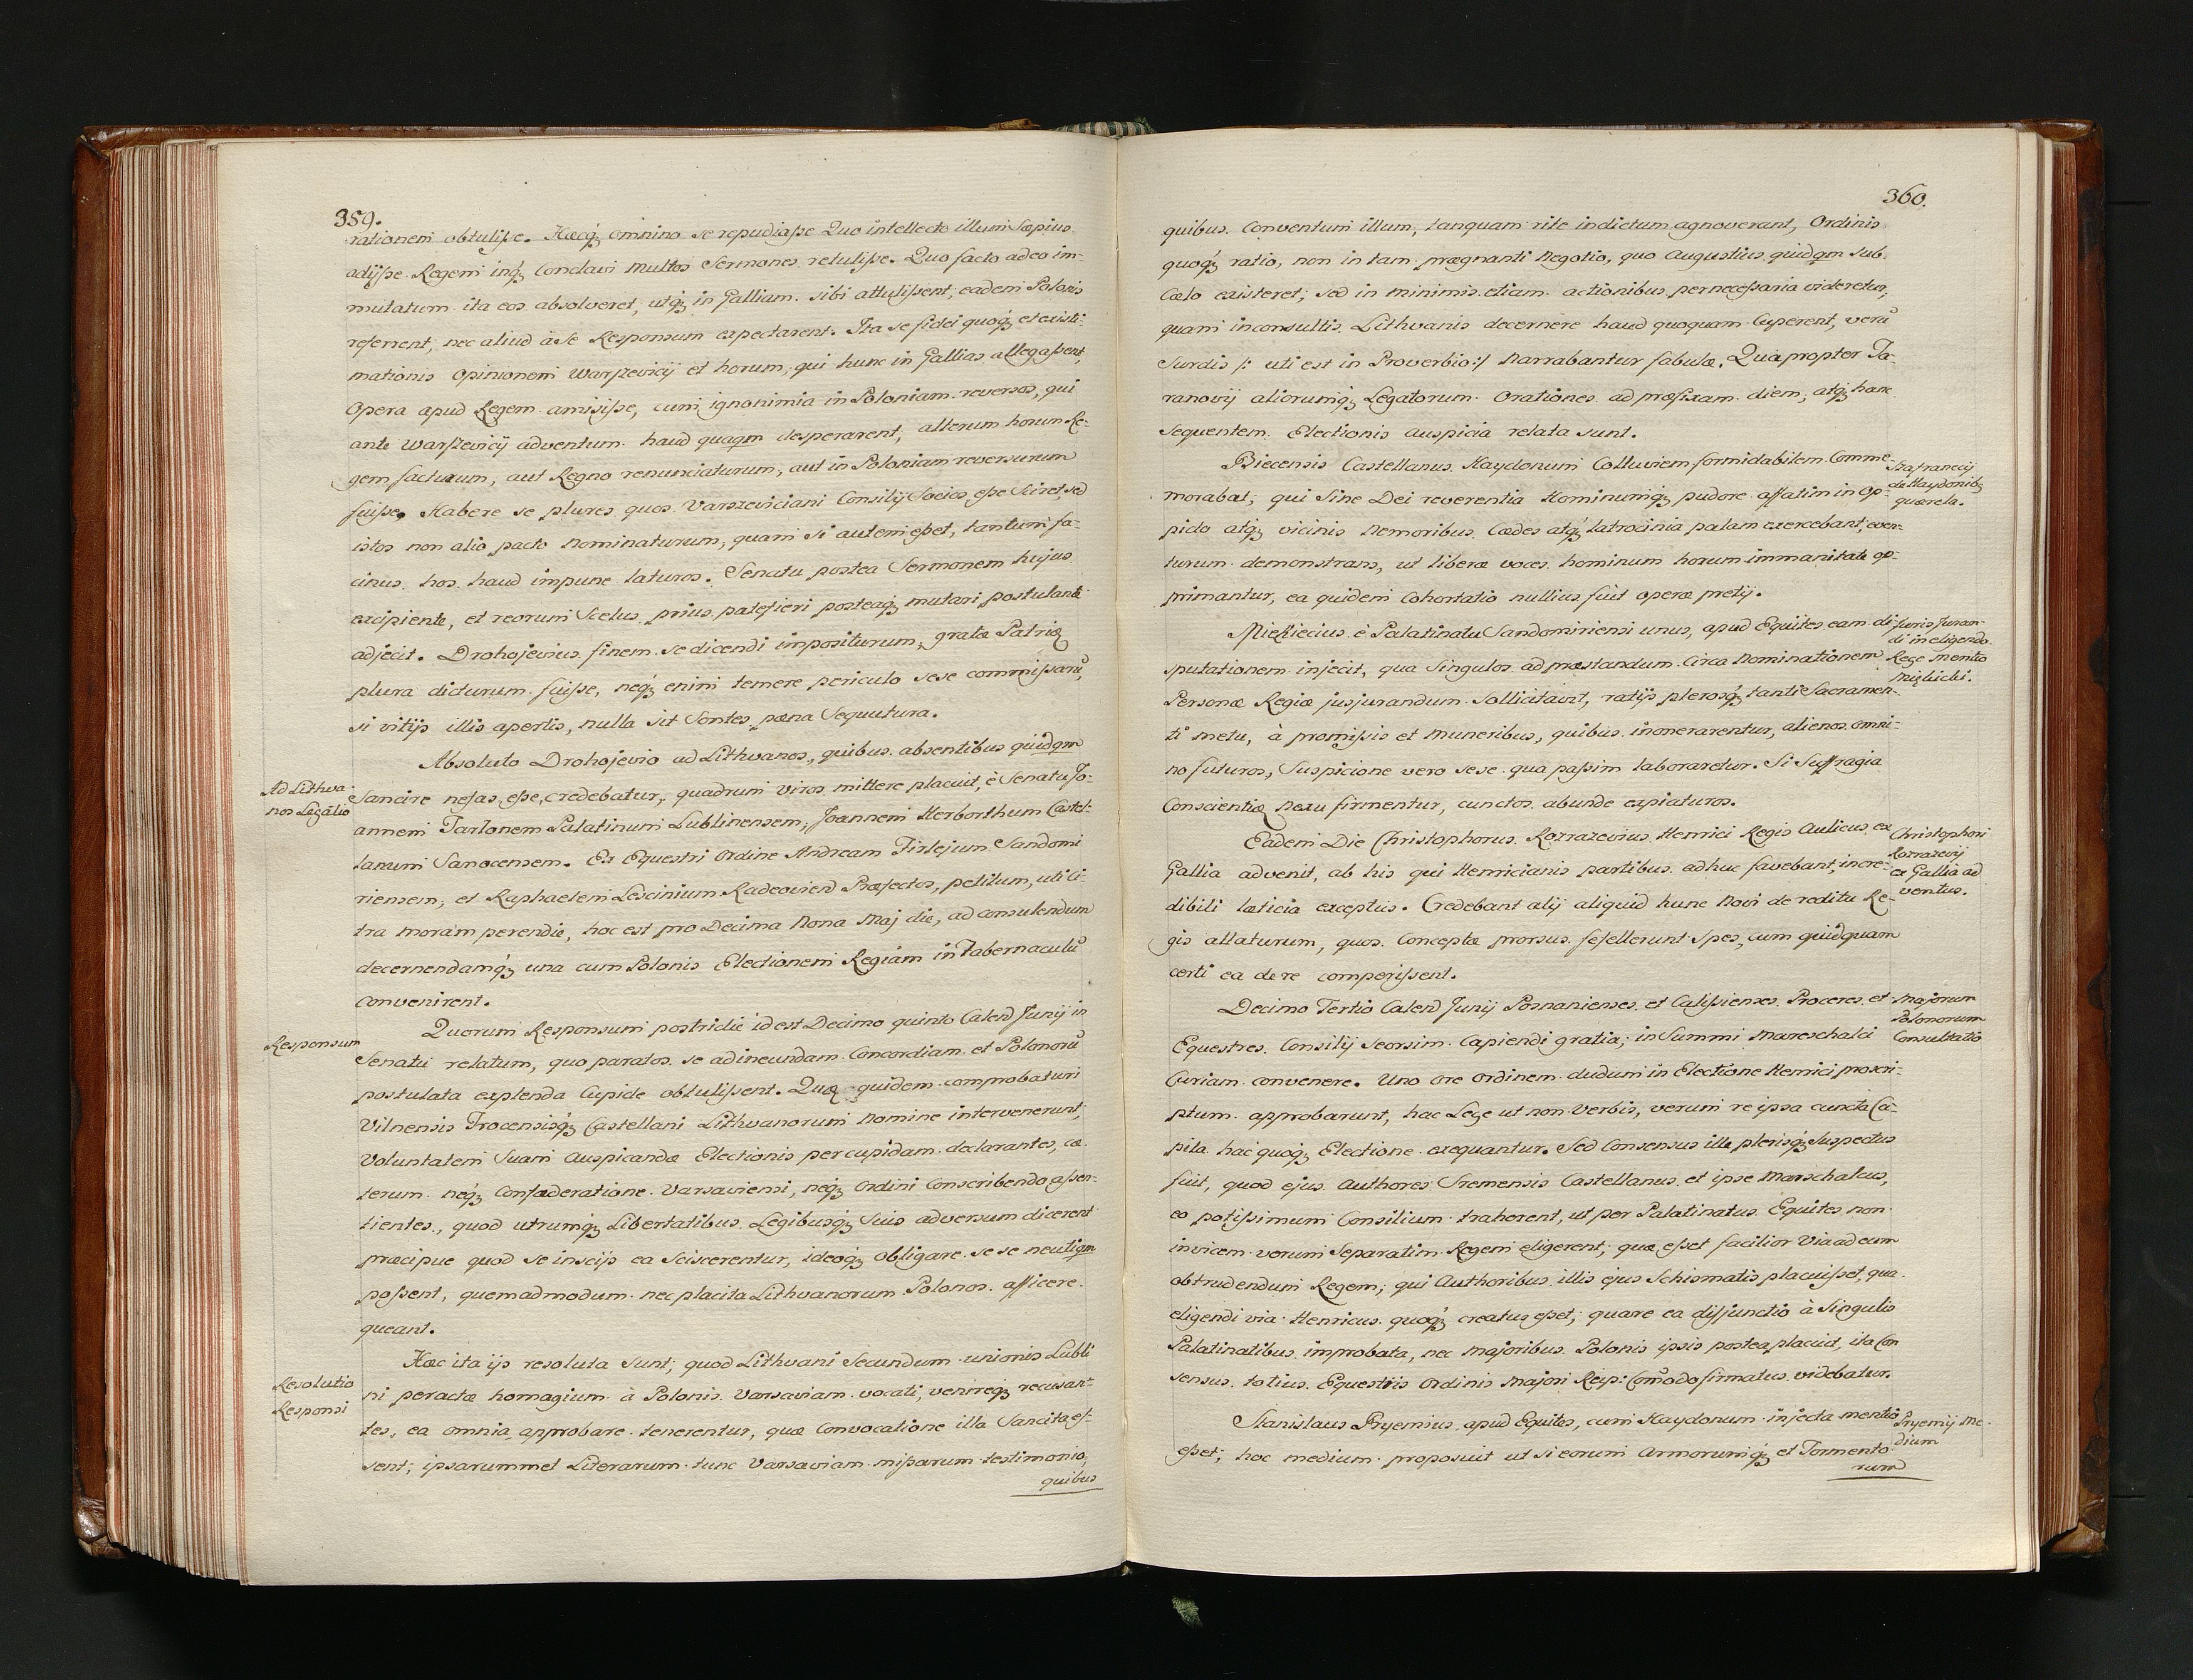 359.
rationem obtulisse. Hæcq́ꝫ omnino se repudiasse Quo intellecto illum Sæpius
adijsse Regem inq́ꝫ Conclavi Multos Sermones retulisse. Quo facto adeo im-
mutatum ita eos absolveret, utq́ꝫ in Galliam sibi attulissent, eadem Polonis
referrent, nec aliud à Se Responsum expectarent. Ita se fidei quoq́ꝫ et existi-
mationis Opinionem Warszevicij et horum, qui hunc in Gallias allegassent,
Opera apud Regem amisisse, cum ignonimia in Poloniam reversos, qui
ante Warszevicij adventum haud quaqm desperarent, alterum horum Re-
gem facturum, aut Regno renunciaturum, aut in Poloniam reversurum
fuisse. Habere se plures quos Varszeviciani Consilij Socios esse Sciret, sed
istos non alio pacto Nominaturum, quam si autem esset, tantum fa-
cinus hos haud impune laturos. Senatu postea Sermonem hujus
excipiente, et reorum Scelus prius patefieri posteaq́ꝫ mutari postulante
adjecit. Drohojevius finem se dicendi impositurum, gratæ Patriæ
plura dicturum fuisse, neq́ꝫ enim temere periculo sese commissarū,
si vitijs illis apertis, nulla sit Sontes pœna Sequutura.
Absoluto Drohojevio ad Lithvanos, quibus absentibus quidqm
Ad Lithva-
nos Legatio
Sancire nefas esse, credebatur, quadrum viros mittere placuit, è Senatu Jo-
annem Tarlonem Palatinum Lublinensem, Joannem Herborthum Castel-
lanum Sanocensem. Ex Equestri Ordine Andream Firlejum Sandomi
riensem, et Raphaelem Lescinium Radeovien Præfectos, petitum, uti ci-
tra moram perendie, hoc est pro Decima Nona Maj die, ad consulendum
decernendamq́ꝫ una cum Polonis Electionem Regiam in Tabernaculū
convenirent.
Quorum Responsum postridie id est Decimo quinto Calend Junij in
Responsum
Senatu relatum, quo paratos se ad ineundam Concordiam et Polonorū
postulata explenda Cupide obtulissent. Quæ quidem comprobaturi
Vilnensis Trocensisq́ꝫ Castellani Lithvanorum Nomine intervenerunt,
Voluntatem Suam Auspicandæ Electionis percupidam declarantes, cæ-
terum neq́ꝫ Confæderatione Varsaviensi, neq́ꝫ Ordini Conscribendo assen-
tientes, quod utrumq́ꝫ Libertatibus Legibusq́ꝫ Suis adversum dicerent
præcipue quod se inscijs ea Sciscerentur, ideoq́ꝫ obligare se se neutiqm
possent, quemadmodum nec placita Lithvanorum Polonos afficere
queant.
Hæc ita ijs resoluta Sunt, quod Lithvani Secundum unionis Lubli
Resolutio
Responsi
ni peractæ homagium à Polonis Varsaviam vocati, venireq́ꝫ recusan-
tes, ea omnia approbare tenerentur, quæ Convocatione illa Sancita es-
sent, ipsarummet Literarum tunc Varsaviam missarum testimonio,
quibus
360.
quibus Conventum illum, tanquam rite indictum agnoverant, Ordinis
quoq́ꝫ ratio, non in tam prægnanti Negotio, quo Augustius quidqm sub
Cælo existeret, sed in minimis etiam actionibus pernecessaria videretur,
quam inconsultis Lithvanis decernere haud quoquam Cuperent, verū
Surdis /: uti est in Proverbio :/ Narrabantur fabulæ. Quapropter Ta-
ranovij aliorumq́ꝫ Legatorum Orationes ad præfixam diem, atq́ꝫ hanc
sequentem Electionis auspicia relata sunt.
Biecensis Castellanus Haydonum Colluviem formidabilem Comme-
Szafrancij
de Haydonibꝫ
quærela.
morabat, qui Sine Dei reverentia Hominumq́ꝫ pudore affatim in Op-
pido atq́ꝫ vicinis Nemoribus Cædes atq́ꝫ latrocinia palam exercebant, ever-
turum demonstrans, ut liberæ voces hominum horum immanitate op-
primantur, ea quidem Cohortatio nullius fuit operæ pretij.
Miekiecius è Palatinatu Sandomiriensi unus, apud Equites eam di-
Juris Juran-
di in eligendo
Rege mentio
Miękicki.
sputationem injecit, qua Singulos ad præstandum Circa Nominationem
Personæ Regiæ jusjurandum Sollicitavit, ratijs plerosq́ꝫ tanti Sacramen-
ti metu, à promissis et Muneribus, quibus inonerarentur, alienos omni-
no futuros, Suspicione vero sese qua passim laboraretur. Si Suffragia
Conscientiæ Nexu firmentur, cunctos abunde expiaturos.
Eadem Die Christophorus Rozrazevius Henrici Regis Aulicus ex
Christophori
Rozrazevij
ex Gallia ad
ventus.
Gallia advenit, ab his qui Henricianis partibus adhuc favebant, incre-
dibili læticia exceptus. Credebant alij aliquid hunc Novi de reditu Re-
gis allaturum, quos Conceptæ prorsus fefellerunt Spes, cum quidquam
certi ea de re comperissent.
Decimo Tertio Calend Junij Posnanienses et Calissienses Proceres et
Majorum
Polonorum
Consultatio
Equestres Consilij Seorsim Capiendi gratia, in Summi Mareschalci
Curiam convenere. Uno Ore Ordinem dudum in Electione Henrici proscri-
ptum approbarunt, hac Lege ut non Verbis, verum re ipsa cuncta Ca-
pita hac quoq́ꝫ Electione exequantur. Sed Consensus ille plerisq́ꝫ Suspectus
fuit, quod ejus Authores Sremensis Castellanus et ipse Marschalcus,
eo potissimum Consilium traherent, ut per Palatinatus Equites non
invicem verum Separatim Regem eligerent, quæ esset facilior Via ad eum
obtrudendum Regem, qui Authoribus illis ejus Schismatis placuisset, qua
eligendi via Henricus quoq́ꝫ creatus esset, quare ea disjunctio à Singulis
Palatinatibus improbata, nec Majoribus Polonis ipsis postea placuit, ita Con
sensus totius Equestris Ordinis Majori Reip: Com̃odo firmatus videbatur.
Stanislaus Pryemius apud Equites, cum Haydonum injecta mentio
Pryemij Me-
dium
esset, hoc medium proposuit ut si eorum Armorumq́ꝫ et Tormento
rum